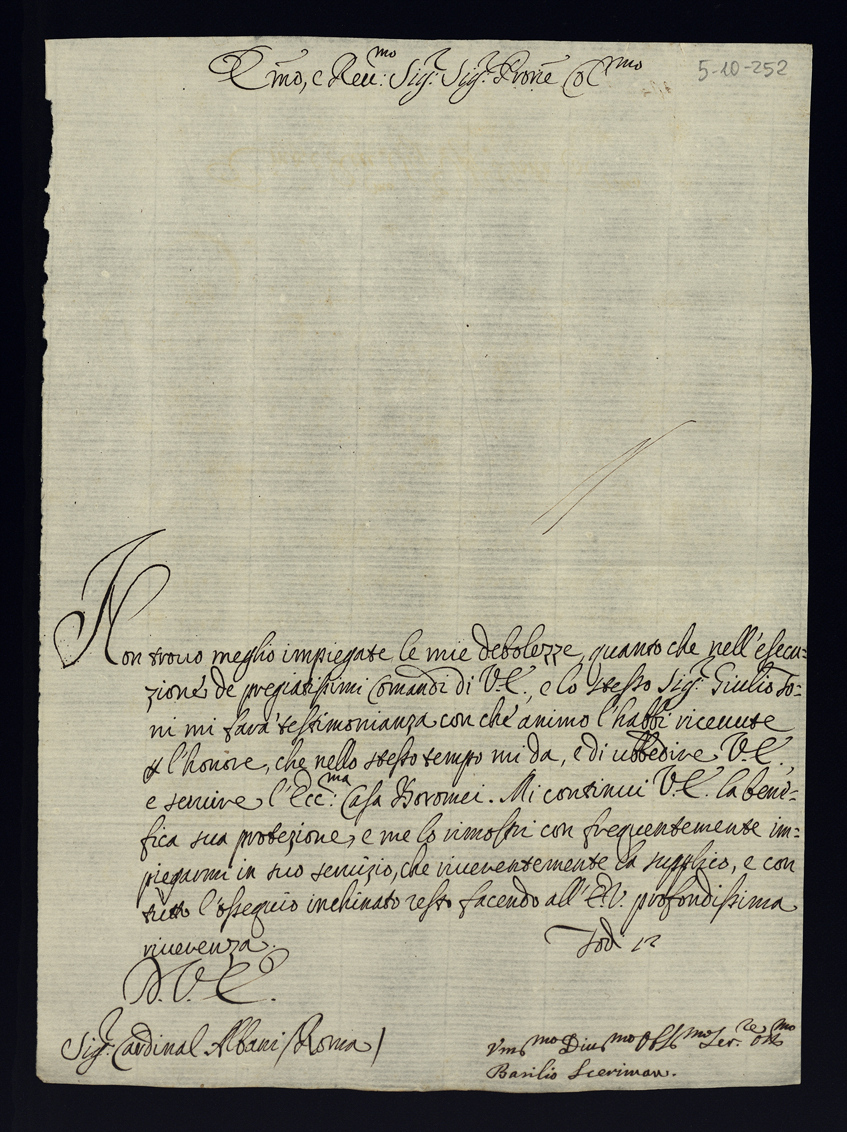 Emo, e Reu:mo Sig.r Sig.r Prone Col.mo
5-10-252
Non trouo meglio impiegate le mie debolezze, quanto che nell'esecu=
zione de pregiatissimi Comandi di V.E., e lo stesso Sig.r Giulio To=
ni mi farà testimonianza con che animo l'habbi riceuute
l'honore, che nello stesso tempo mi da, e di ubbedire V.E.,
e seruire l'Ecc:ma Casa Boromei. Mi continui V.E. la bene=
fica sua protezione, e me lo rimostri con frequentemente im=
piegarmi in suo seruizio, che riuerentemente la supplico, e con
tutto l'ossequio inchinato resto facendo all'E.V. profondissima
riuerenza.
D. V. E.
Sig.r Cardinal Albani / Roma /
Vm.mo Diu.mo Obl.mo Ser.re
Basilio Sceriman.